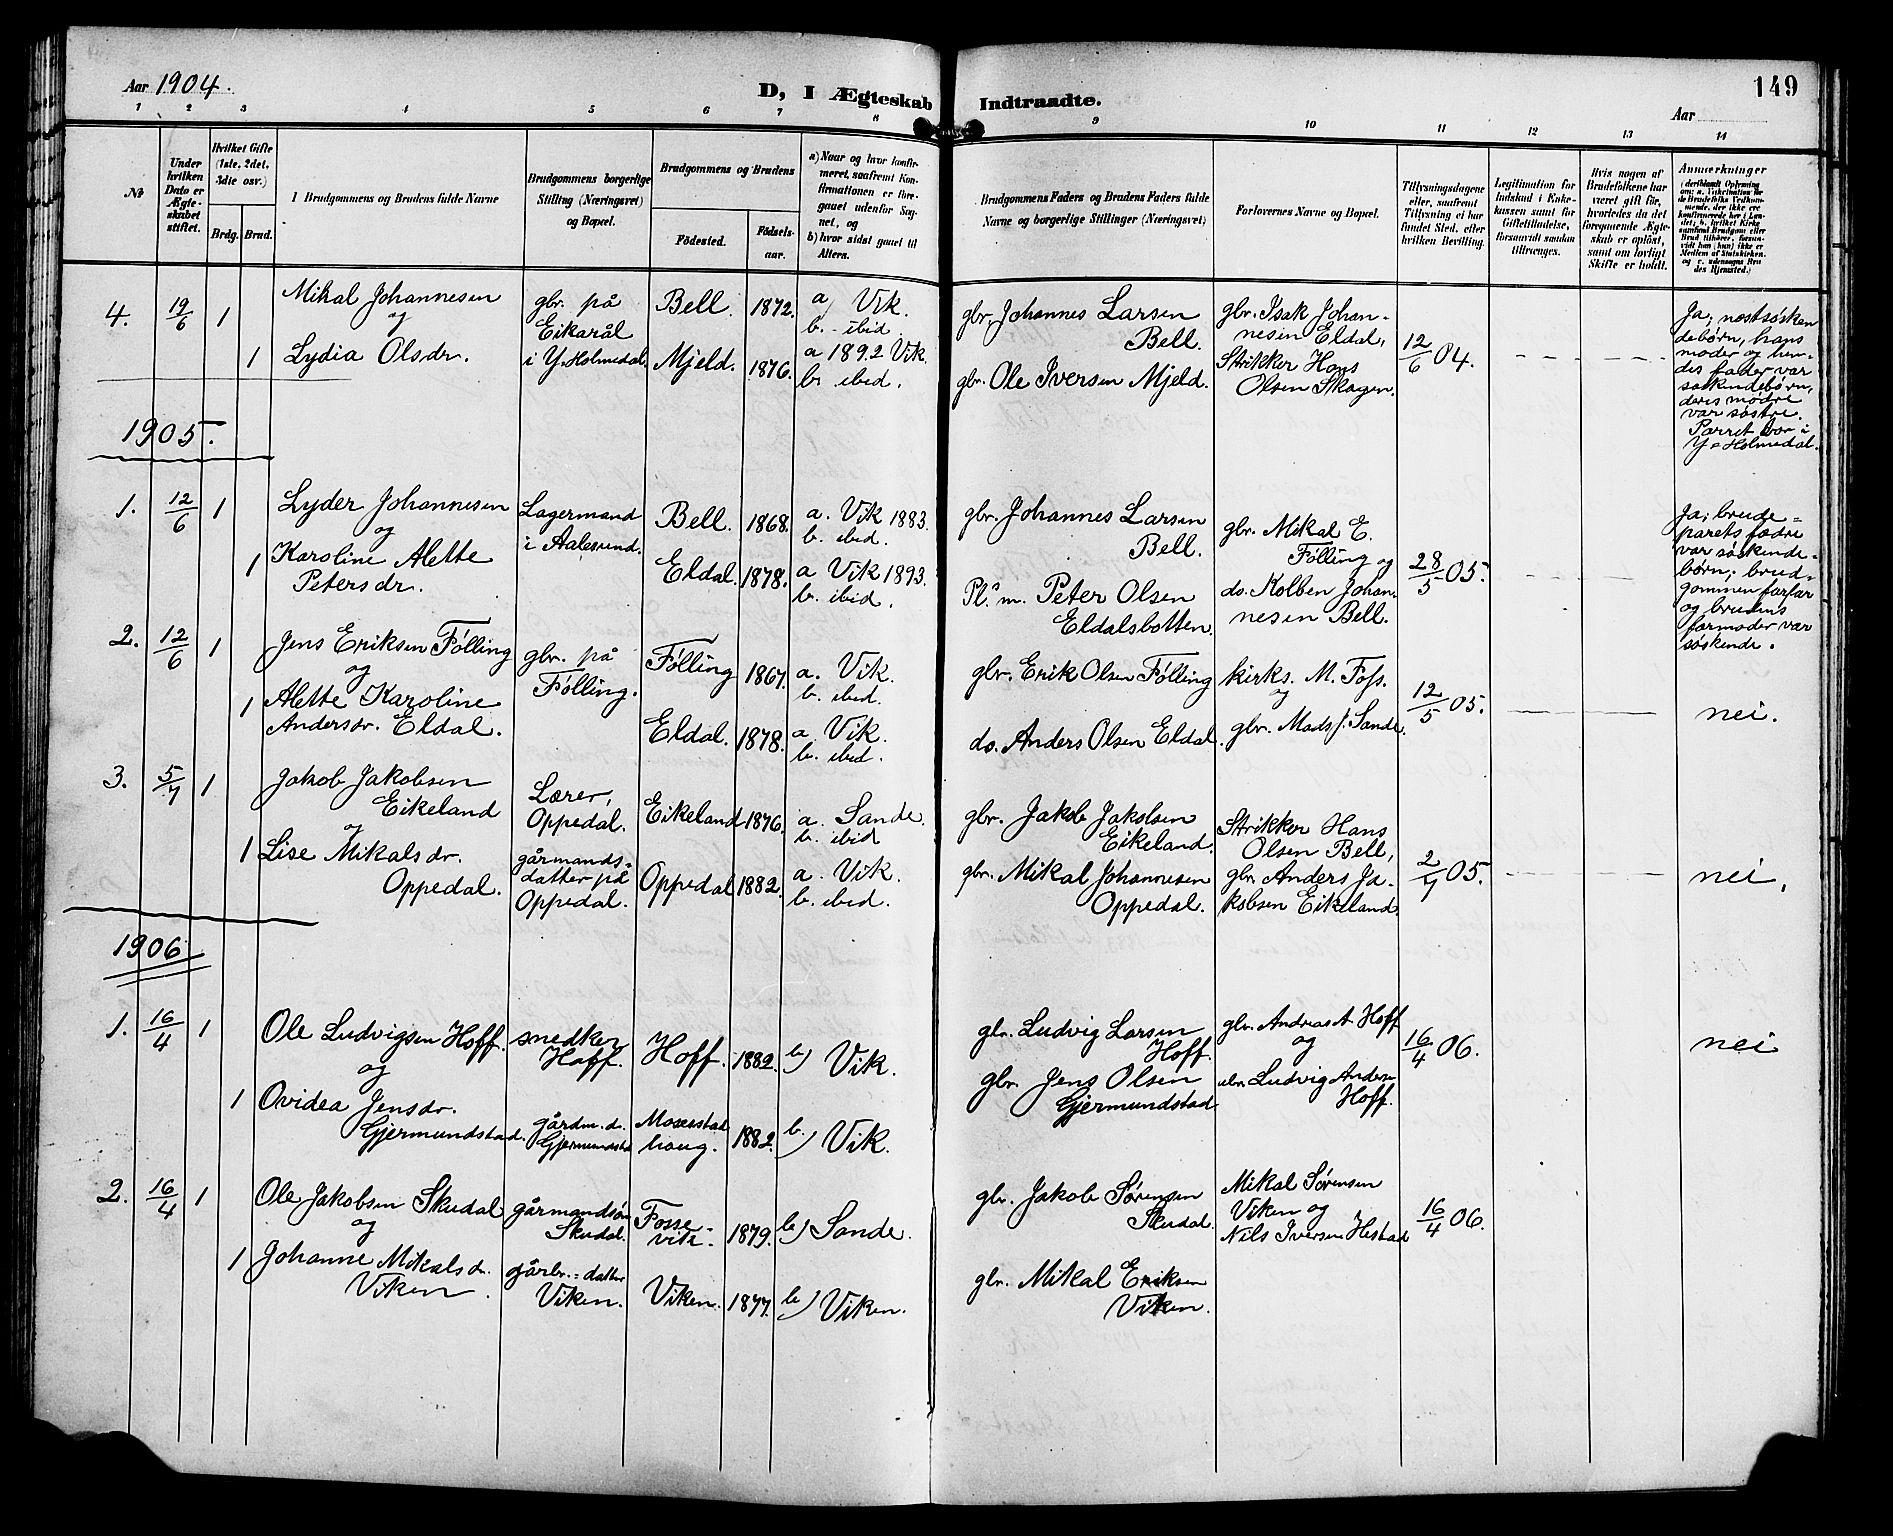 Aar 1904.
D, I Ægteskab Indtraadte.
149
Aar
1 2 3 4 5 6 7 8 9 10 11 12 13 14
No
Under hvilken Dato er Ægteskabet stiftet.
Hvilket Gifte (1ste, 2det, 3die osv.)
Brdg. Brud.
Brudgommens og Brudens fulde Navne
Brudgommens borgerlige Stilling (Næringsvei) og Bopæl.
Brudgommens og Brudens
Fødested.
Fødselsaar.
a) Naar og hvor konfirmeret, saafremt Konfirmationen er foregaaet udenfor Sognet, og
b) hvor sidst gaaet til Alters.
Brudgommens Faders og Brudens Faders fulde Navne og borgerlige Stillinger (Næringsvei)
Forlovernes Navne og Bopæl.
Tillysningsdagene eller, saafremt Tillysning ei har fundet Sted, efter hvilken Bevilling.
Legitimation for Indskud i Enkekassen samt for Giftetilladelse, forsaavidt saadan tiltrænges.
Hvis nogen af Brudefolkene har været gift før, hvorledes da det foregaaende Ægteskab er opløst, samt om lovligt Skifte er holdt.
Anmærkninger
4. 19/6 1 Mikal Johannesen
og
1 Lydia Olsdr.
gbr. på
Eikarål
i Y. Holmedal.
Bell. 1872. a) Vik.
b. ibid.
Mjeld. 1876. a 1892 Vik.
b. ibid.
gbr. Johannes Larsen
Bell.
gbr. Ole Iversen Mjeld.
gbr. Isak Johan-
nesen Eldal,
Strikker Hans
Olsen Skagen.
12/6 04.
Ja; næstsøsken
debørn, hans
moder og hen-
des fader var
søskendebørn,
deres mødre
var søstre.
Parret bor i
Y-Holmedal.
1905.
1. 12/6 1 Lyder Johannesen
og
1 Karoline Alette
Petersdr.
Lagermand
i Aalesund.
Bell. 1868. a. Vik 1883.
b. ibid.
Eldal. 1878. a Vik 1893.
b. ibid.
gbr. Johannes Larsen
Bell.
Pl.m. Peter Olsen
Eldalsbotten.
gbr. Mikal E.
Følling og
do. Kolben Johan-
nesen Bell.
28/5 05.
Ja; brude=
parets fædre
var søskende-
børn; brud-
gommen farfar
og brudens
farmoder var
søskende.
2. 12/6 1 Jens Eriksen Følling
og
1 Alette Karoline
Andersdr. Eldal.
gbr. på
Følling.
Følling 1867. a. Vik.
b. ibid.
Eldal. 1878. a. Vik.
b. ibid.
gbr. Erik Olsen Følling
do. Anders Olsen Eldal.
kirks. M. Foss.
og
gbr. Mads J. Sande.
12/5 05.
nei.
3. 5/7 1 Jakob Jakobsen
Eikeland
og
1 Lise Mikalsdr.
Oppedal.
Lærer,
Oppedal.
gårmands=
datter på
Oppedal.
Eikeland 1876. a. Sande.
b. ibid
Oppedal 1882. a. Vik.
b. ibid.
gbr. Jakob Jakobsen
Eikeland.
gbr. Mikal Johannesen
Oppedal.
Strikker Hans
Olsen Bell,
gbr. Anders Ja-
kobsen Eikeland.
2/7 05.
nei.
1906
1. 16/4 1 Ole Ludvigsen Hoff.
og
1 Ovidea Jensdr.
Gjermundstad.
snedker
Hoff.
gårdm. d.
Gjermundstad
Hoff. 1882. b) Vik.
haug. 1882. b) Vik.
gbr. Ludvig Larsen
Hoff.
gbr. Jens Olsen
Gjermundstad
gbr. Andreas A. Hoff
og
Ludvig Anders
Hoff.
16/4 06.
nei
2. 16/4 1 Ole Jakobsen Skudal
og
1 Johanne Mikalsdr.
Viken.
gårmandsøn
Skudal.
gårbr.=datter
Viken.
Fosse-
vik. 1879. b) Sande.
Viken. 1877. b) Viken.
gbr. Jakob Sørensen
Skudal.
gbr. Mikal Eriksen
Viken.
Mikal Sørensen
Viken og
Nils Iversen Hestad
16/4 06.